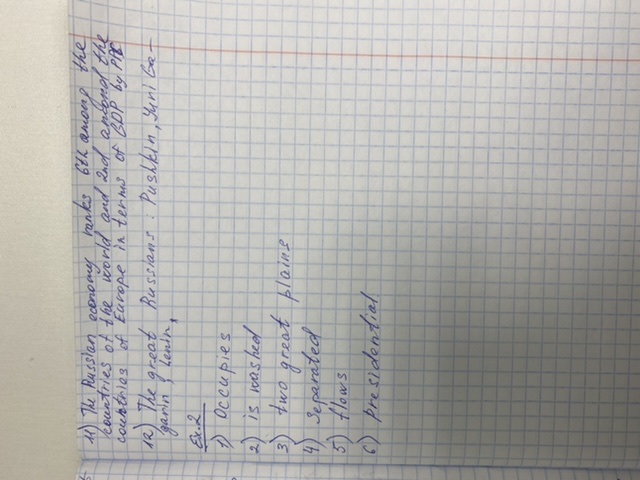 11) The Russian economy ranks 6th among the
countries of the world and 2nd amoond the
countries of Europe in terms of GDP by PPS
12) The great Russians : Pushkin, Yuri Ga-
garin, Lenin,
Ex.2
1) Occupies
2) is washed
3) two great plains
4) separated
5) flows
6) presidential